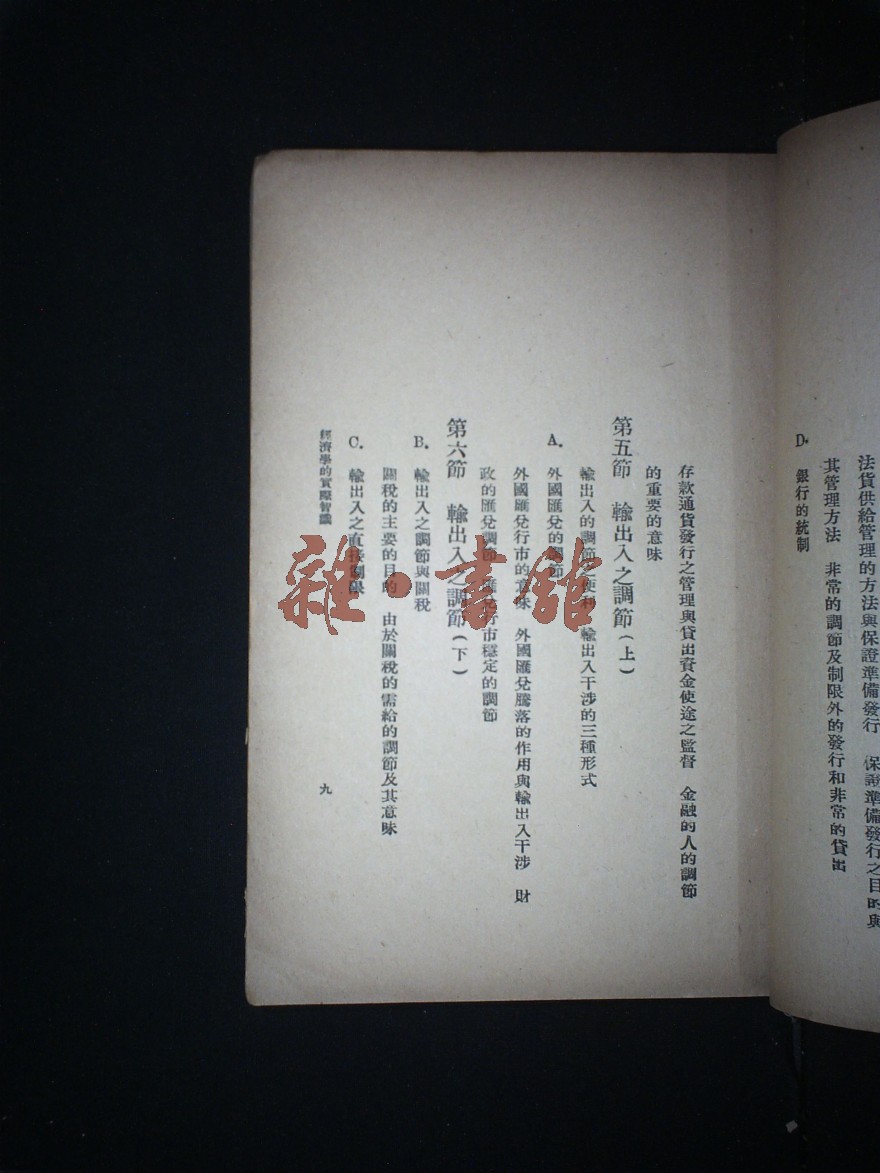 法貨供給管理的方法與保證準備發行　保證準備發行之目的與
其管理方法　非常的調節及制限外的發行和非常的貸出
D. 銀行的統制
存款通貨發行之管理與貸出資金使途之監督　金融的人的調節
的重要的意味
第五節　輸出入之調節(上)
輸出入的調節　便利　輸出入干涉的三種形式
A. 外國匯兌的調節
外國匯兌行市的意味　外國匯兌騰落的作用與輸出入干涉　財
政的匯兌調節　匯兌行市穩定的調節
第六節　輸出入之調節(下)
B. 輸出入之調節與關稅
關稅的主要的目的　由於關稅的需給的調節及其意味
C. 輸出入之直接制限
經濟學的實際智識
九
雜·書館